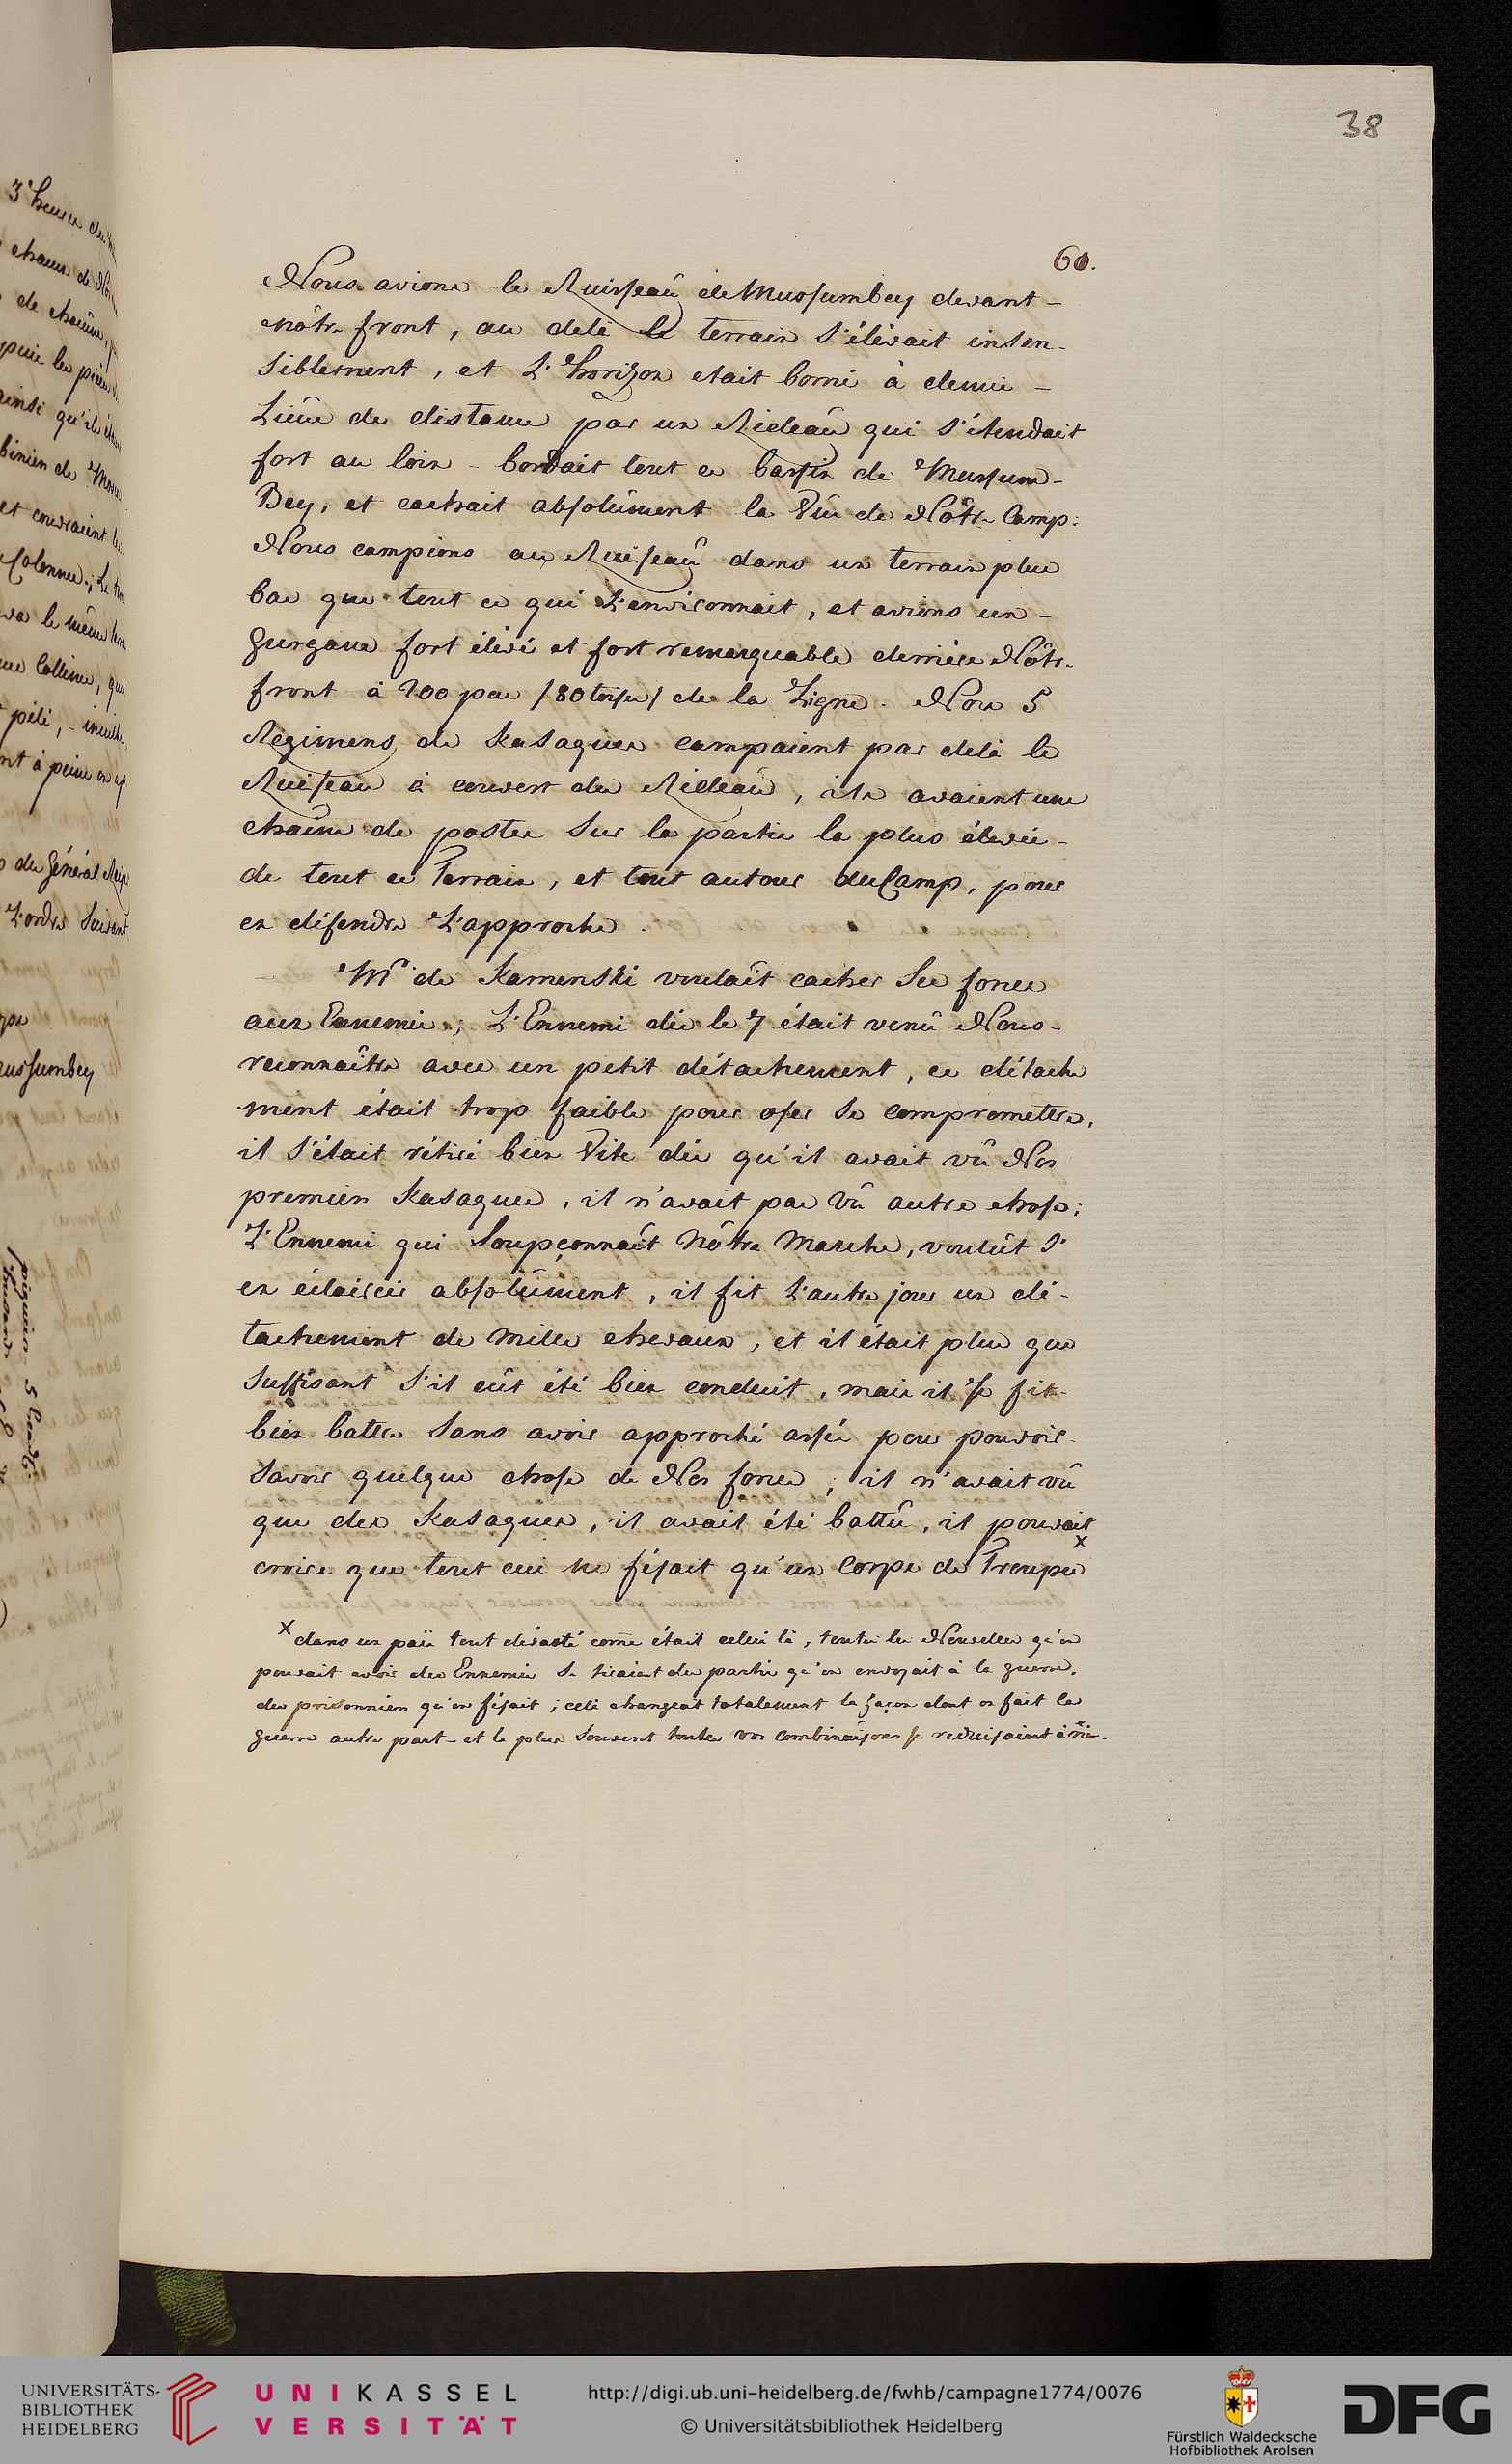 38
60.
Nous avions le Ruisseaû de Mussumbey devant-
nôtre front, au delà le terrain s'élèvait insen-
siblement, et L'horizon etait borné à demie-
Lieüe de distance par un Rideaû qui s'étendait
fort au loin - bordait tout ce bassin de Mussum-
Bey, et cachait absolûment la Vüe de Nôtre Camp:
Nous campions au Ruisseaû dans un terrain plus
bas que tout ce qui L'environnait, et avions un-
Gurgane fort élévé et fort remarquable derrière Nôtre
front à 200 pas /80 toises/ de la Ligne. Nos 5
Regimens de Kasaques campaient par delà le
Ruisseau à couvert du Rideaû, ils avaient une
chaine de postes sur la partie la plus élevée-
de tout ce Terrain, et tout autour du Camp, pour
en défendre L'approche.
Mr de Kamenski voulaît cacher ses forces
aux Ennemis; L'Ennemi dès le 7 était venû Nous-
reconnaître avec un petit détachement, ce détache
ment était trop faible pour oser se compromettre,
il s'était rétiré bien Vite dès qu'il avait vû Nos
premiers Kasaques, il n'avait pas Vû autre chose;
L'Ennemi qui soupçonnaît Nôtre Marche, voulût s'
en éclaircir absolûment, il fit L'autre jour un dé-
tachement de Mille chevaux, et il était plus que
suffisant s'il eût été bien conduit, mais il se fit-
bien battre sans avoir approché assés pour pouvoir-
savoir quelque chose de Nos forces; il n'avait vû
que des Kasaques, il avait été battû, il pouvait
croire que tout ceci ne fesait qu'un Corps de Troupes x
x dans un païs tout dévasté come était celui là, toutes les Nouvelles qu'on
pouvait avoir des Ennemis se tiraient des partis qu'on envoyait à la guerre,
des prisonniers qu'on fésait; celà changeat totalement la façon dont on fait la
guerre autre part - et le plus souvent toutes vos combinaisons se reduisaient à rien.
3e heure du
chacun de
de chacune,
puis les pièces
ainsi qu'ils
et couvraient
Colonnes; Le
va le même
Colline,
à peine en
du Général
L'ordre suivant
ussumbey
UNIVERSITÄTS-
BIBLIOTHEK
HEIDELBERG
UNIKASSEL
VERSITÄT
http://digi.ub.uni-heidelberg.de/fwhb/campagne1774/0076
© Universitätsbibliothek Heidelberg
Fürstlich Waldecksche
Hofbibliothek Arolsen
DFG